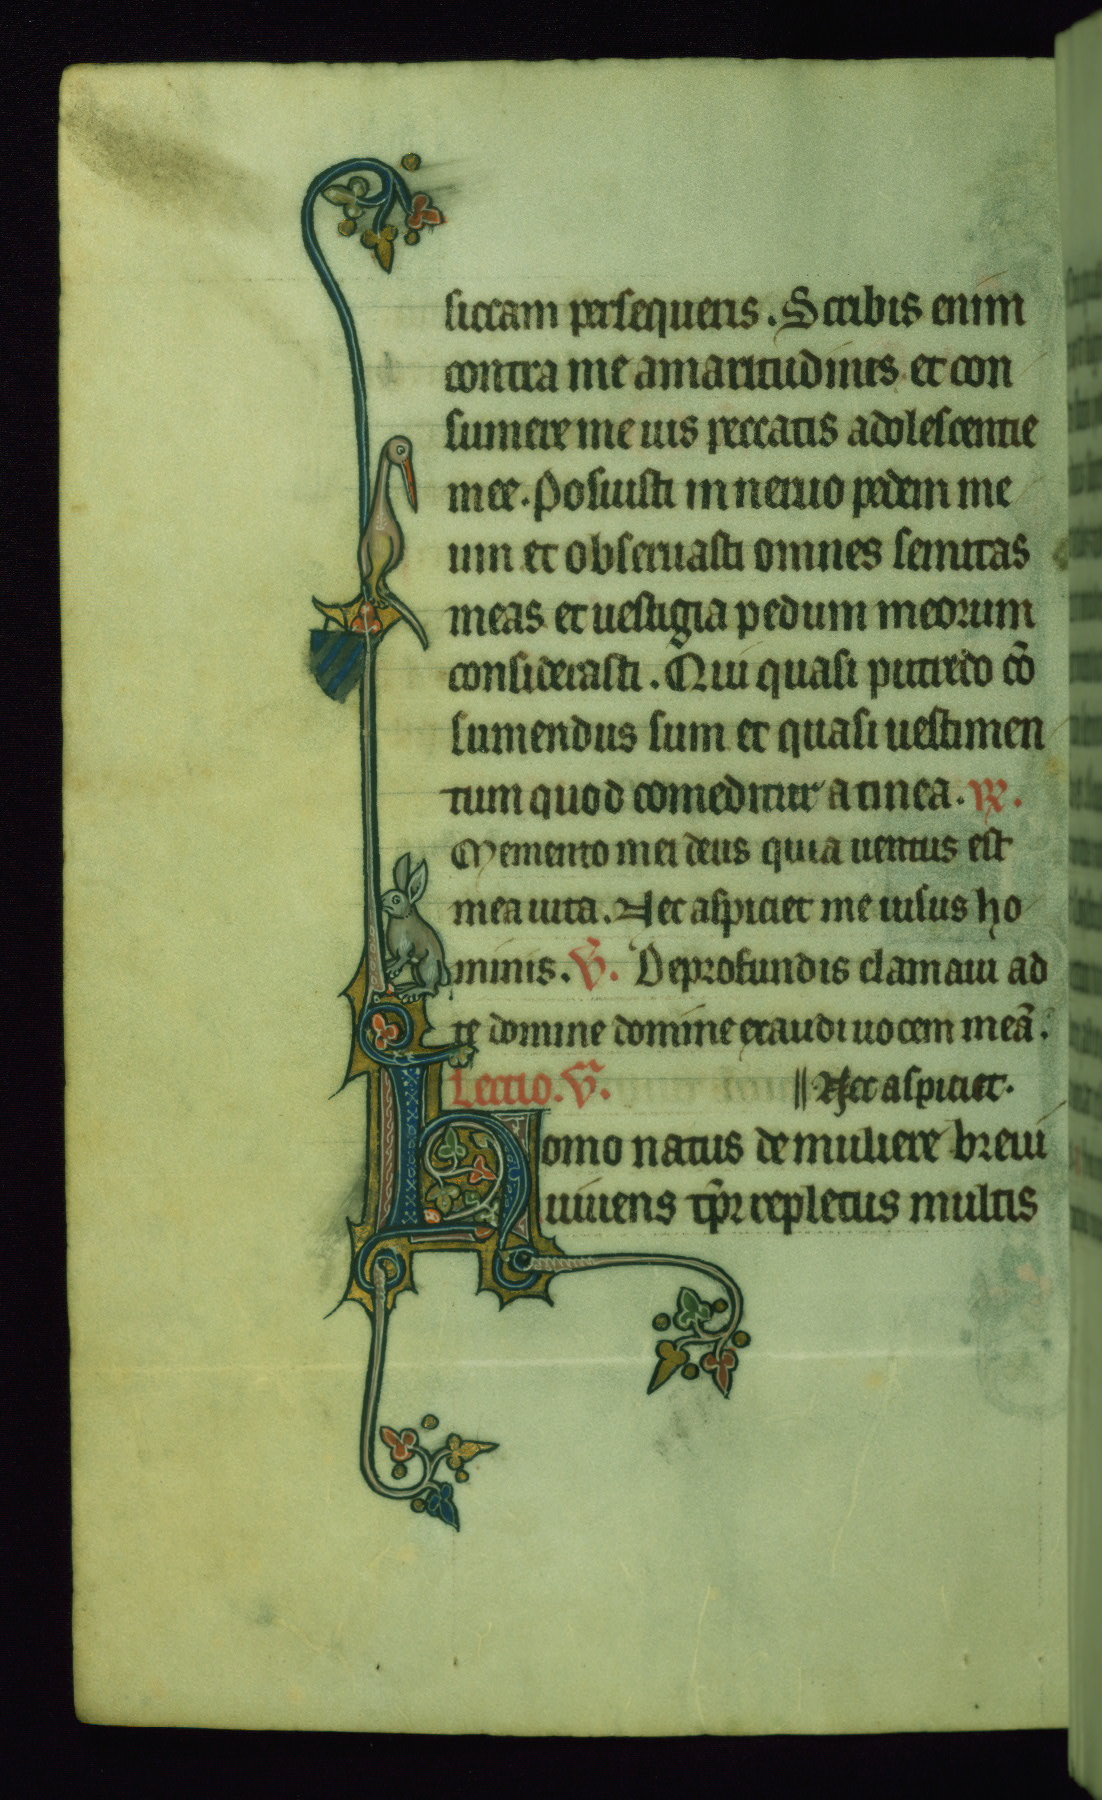 siccam persequeris. Scribis enim
contra me amaritudines et con
sumere me uis peccatis adolescentie
mee. Posuisti in neruo pedem me
um et obseruasti omnes semitas
meas et uestigia pedum meorum
considerasti. Qui quasi putredo cō
sumendus sum et quasi uestimen
tum quod comeditur a tinea. ℟.
Memento mei deus quia uentus est
mea uita. Nec aspiciet me uisus ho
minis. ℣. De profundis clamaui ad
te domine domine exaudi uocem meā.
Lectio. vͣ. ‖ Nec aspiciet.
Homo natus de muliere breui
uiuens tp̄r repletus multis